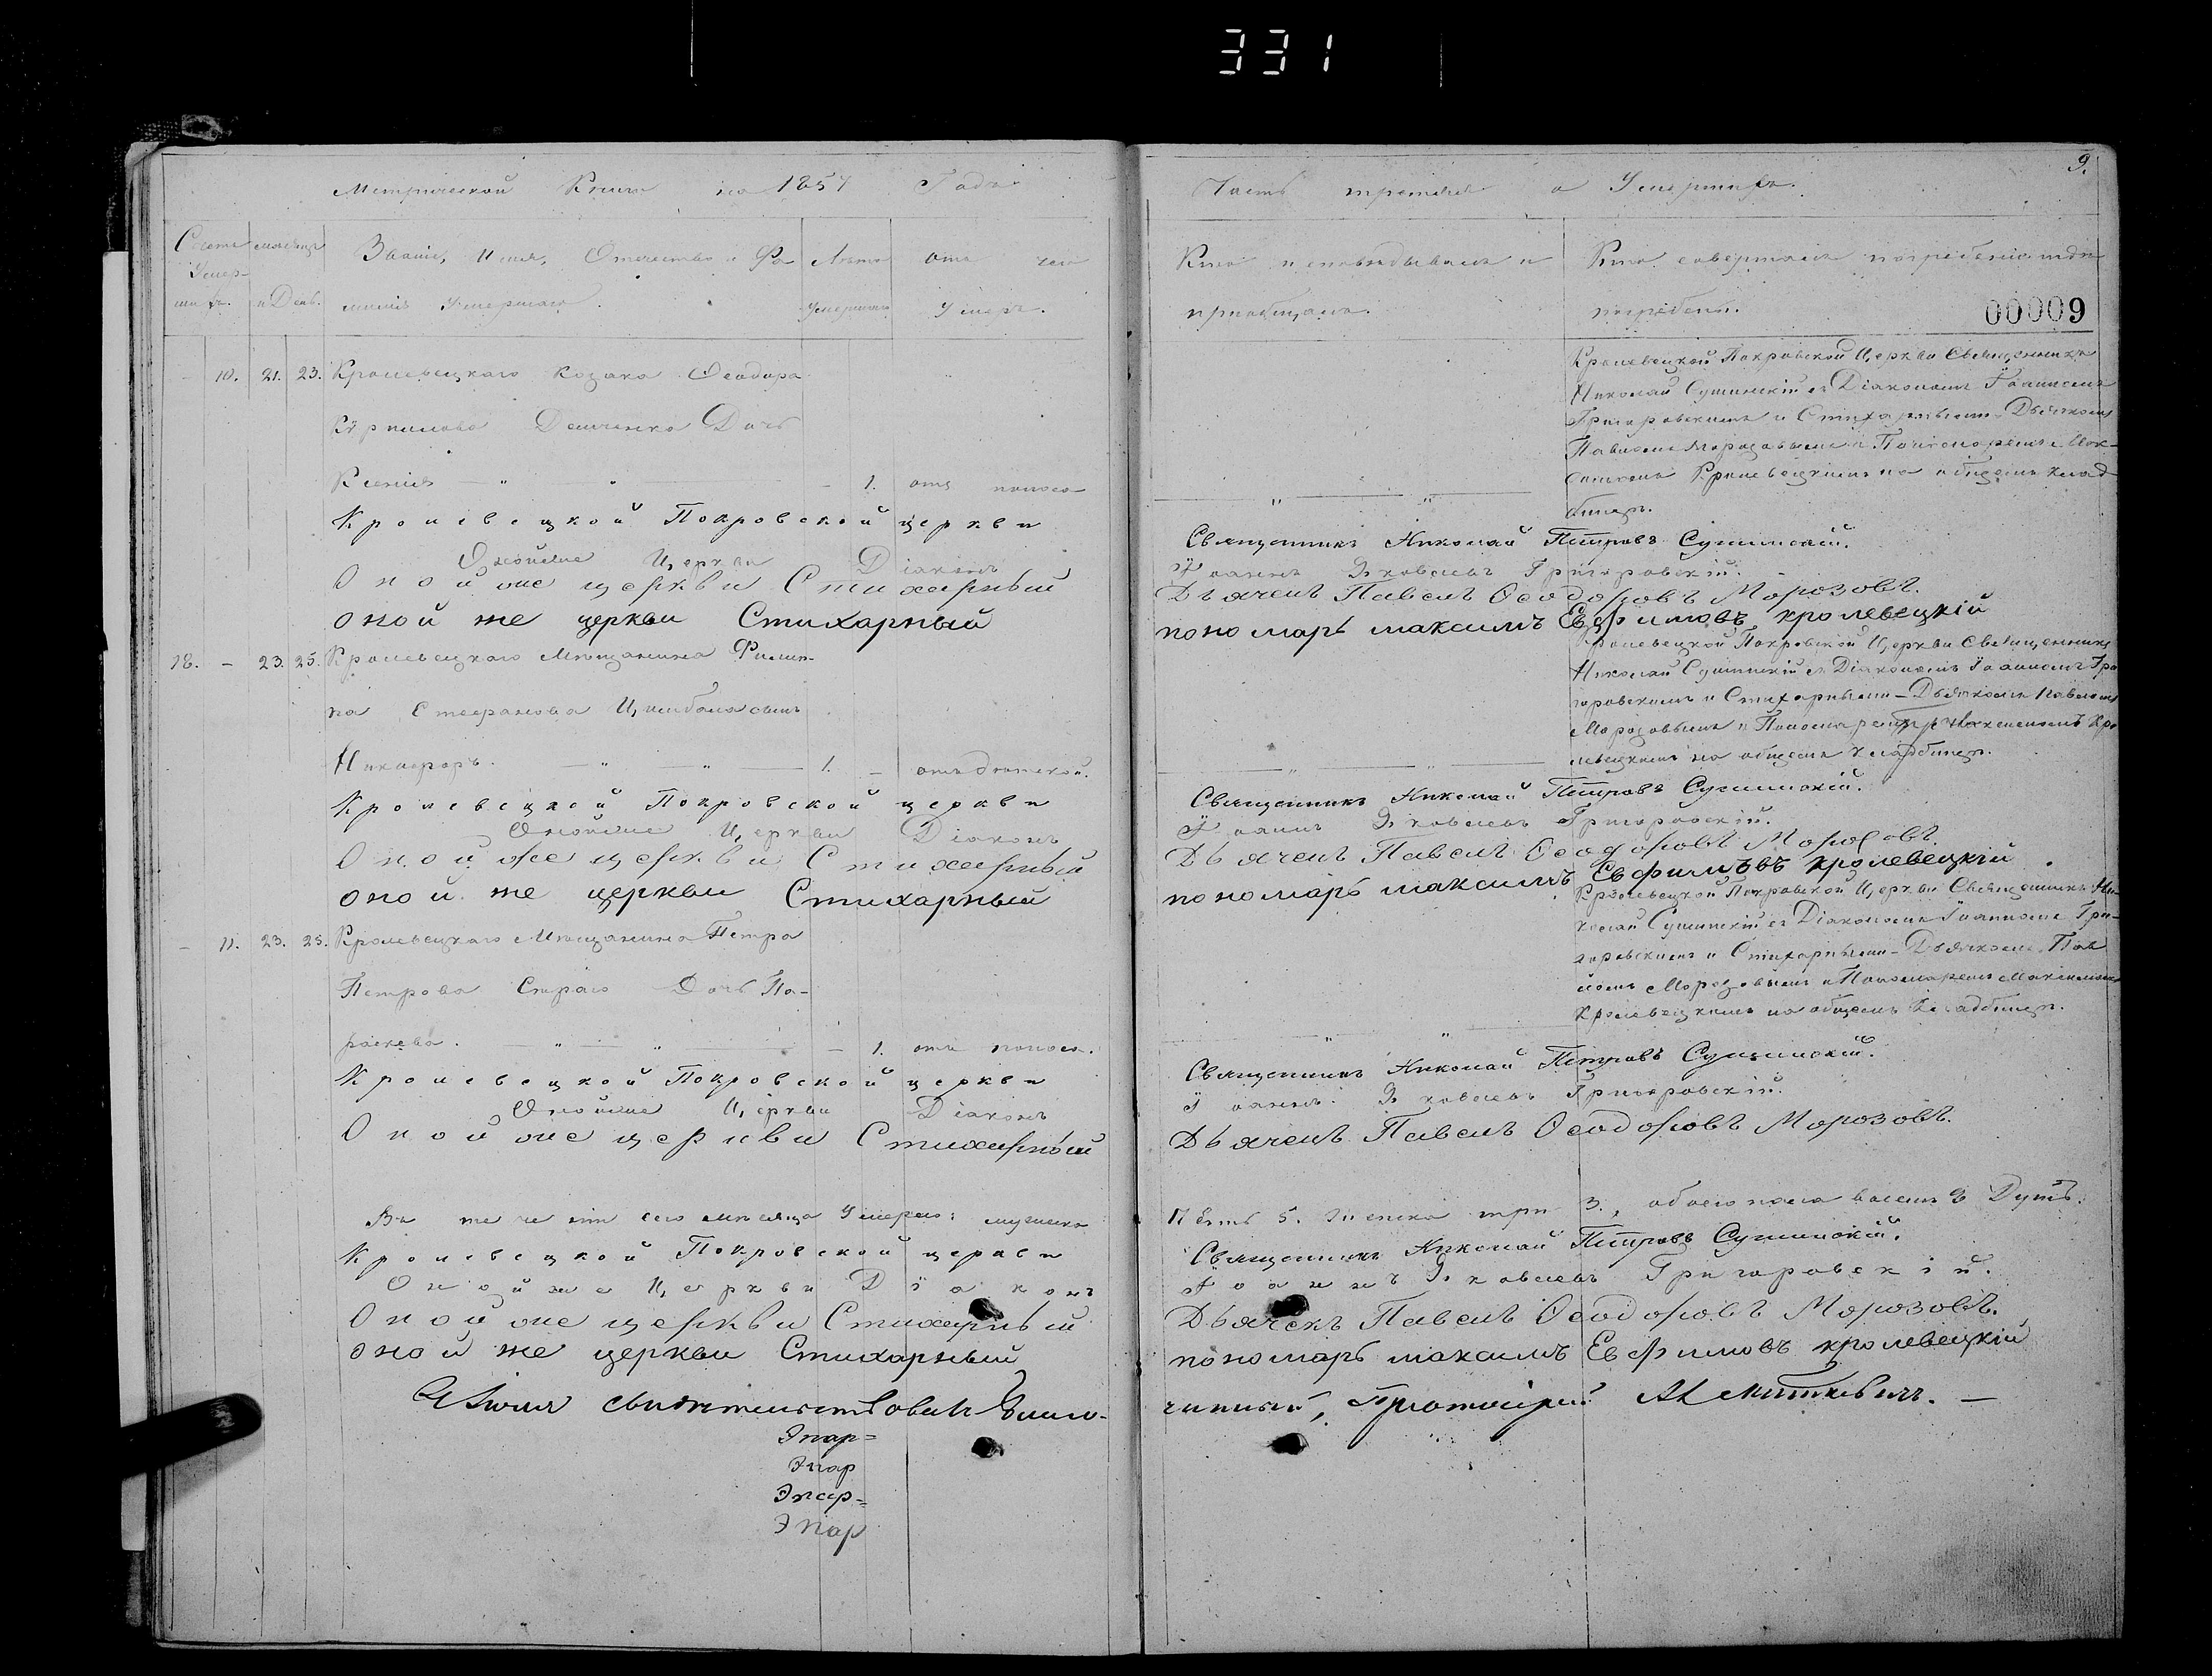 331
Метрической Книги на 1857 Годъ
Счетъ Умер-шихъ.
Месяцъ и День.
Званіе, Имя, Отчество и Фа
милія Умершаго.
Лета Умершаго
отъ чего
Умеръ.
10. 21. 23. Кролевецкаго Козака Ѳеодора
Демченка Дочь
Ксенія — „ — „ — 1. отъ поноса
Кролевецкой Покровской церкви
Онойже Церкви Діаконъ
Оной же церкви Стихарный
оной же церкви Стихарный
18. – 23. 25. Кролевецкаго Мѣщанина Филип-
па Стефанова Цимбала сынъ
Никифоръ. — „ — „ — 1. – отъ
Кролевецкой Покровской церкви
Онойже Церкви Діаконъ
Оной же церкви Стихарный
оной же церкви Стихарный
– 11. 23. 25. Кролевецкаго Мѣщанина Петра
Петрова Дочь Па-
раскева. — „ — „ — 1. отъ поноса.
Кролевецкой Покровской церкви
Онойже Церкви Діаконъ
Оной же церкви Стихарный
Въ теченіи сего мѣсяца Умерло: мужеска
Кролевецкой Покровской церкви
Онойже Церкви Діаконъ
Оной же церкви Стихарный
оной же церкви Стихарный
свидѣтельствовалъ Благо-
Эпар-
Эпар
Эпар-
Эпар
9.
Часть третія о Умершихъ.
Кто исповѣдывалъ и
пріобщалъ.
Кто совершалъ погребеніе и гдѣ
погребены.
00009
Кролевецкой Покровской Церкви Священникъ
Николай Сушинскій съ Діакономъ Іоанномъ
Григоровскимъ и Стихарными – Дьячкомъ
Павломъ Морозовымъ и Пономаремъ Мак-
симомъ Кролевецкимъ на общемъ клад-
бищѣ.
Священникъ Николай Петровъ Сушинскій.
Іоаннъ Яковлевъ Григоровскій.
Дьячекъ Павелъ Ѳеодоровъ Морозовъ.
пономарь максимъ Ефимовъ кролевецкій
Кролевецкой Покровской Церкви Священникъ
Николай Сушинскій съ Діакономъ Іоанномъ Гри
горовскимъ и Стихарными – Дьячкомъ Павломъ
Морозовымъ и Пономаремъ Максимомъ Кро
левецкимъ на общемъ кладбищѣ.
Священникъ Николай Петровъ Сушинскій.
Іоаннъ Яковлевъ Григоровскій.
Дьячекъ Павелъ Ѳеодоровъ Морозовъ.
пономарь максимъ Ефимовъ кролевецкій
Кролевецкой Покровской Церкви Священникъ Ни-
колай Сушинскій съ Діакономъ Іоанномъ Гри-
горовскимъ и Стихарными – Дьячкомъ Пав
ломъ Морозовымъ и Пономаремъ Максимомъ
Кролевецкимъ на общемъ Кладбищѣ.
Священникъ Николай Петровъ Сушинскій.
Іоаннъ Яковлевъ Григоровскій.
Дьячекъ Павелъ Ѳеодоровъ Морозовъ.
Пять 5. Женска три 3., обоего пола восемь 8 Душъ.
Священникъ Николай Петровъ Сушинскій.
Іоаннъ Яковлевъ Григоровскій.
Дьячекъ Павелъ Ѳеодоровъ Морозовъ.
пономарь максимъ Ефимовъ кролевецкій
чинный, Протоіерей